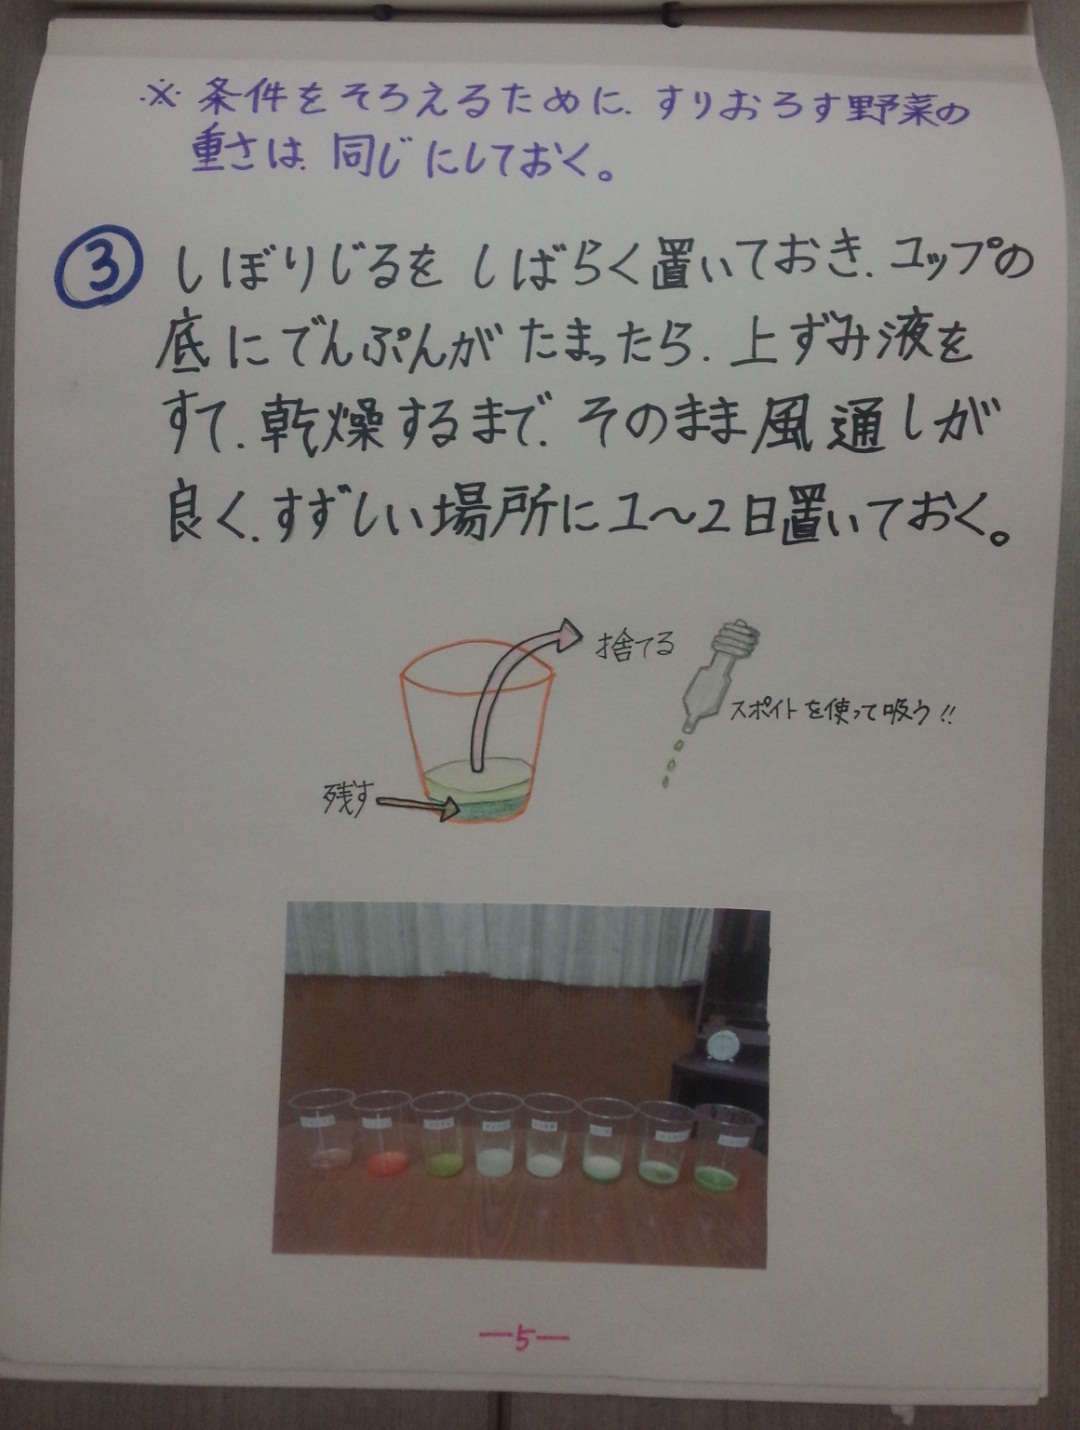 ※ 条件をそろえるために、すりおろす野菜の
重さは、同じにしておく。
③ しぼりじるを しばらく置いておき、コップの
底にでんぷんが たまったら、上ずみ液を
すて、乾燥するまで、そのまま風通しが
良く、すずしい場所に1〜2日置いておく。
捨てる
スポイトを使って吸う!!
残す
—5—